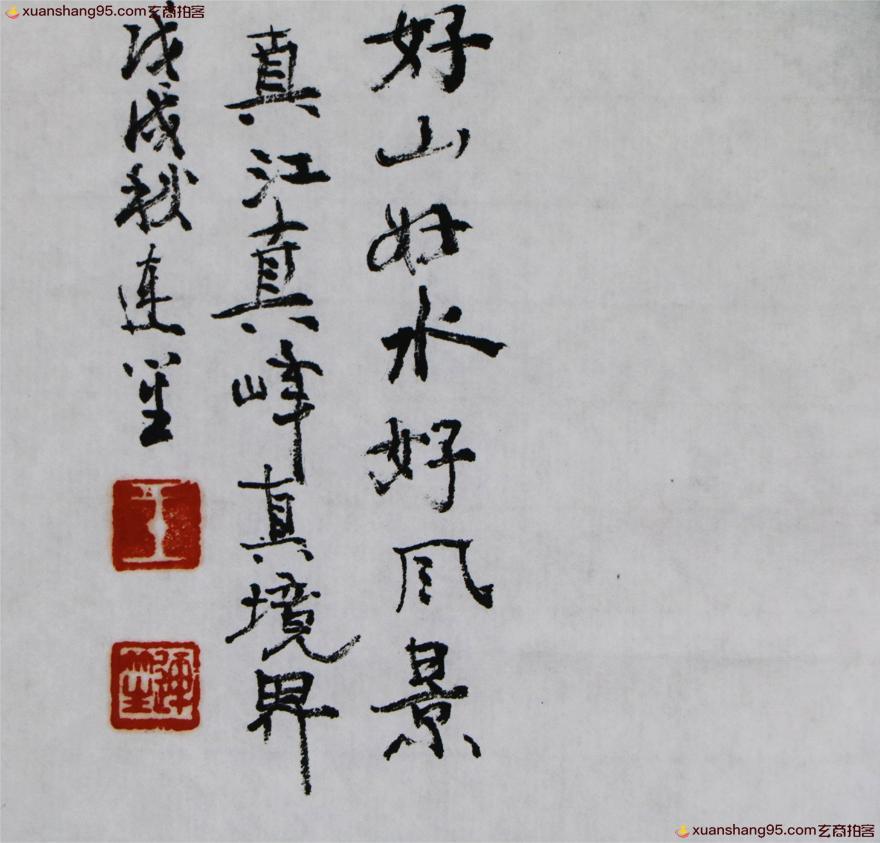 xuanshang95.com玄商拍客
好山好水好风景
真江真峰真境界
戊戌秋连笙
王
xuanshang95.com玄商拍客